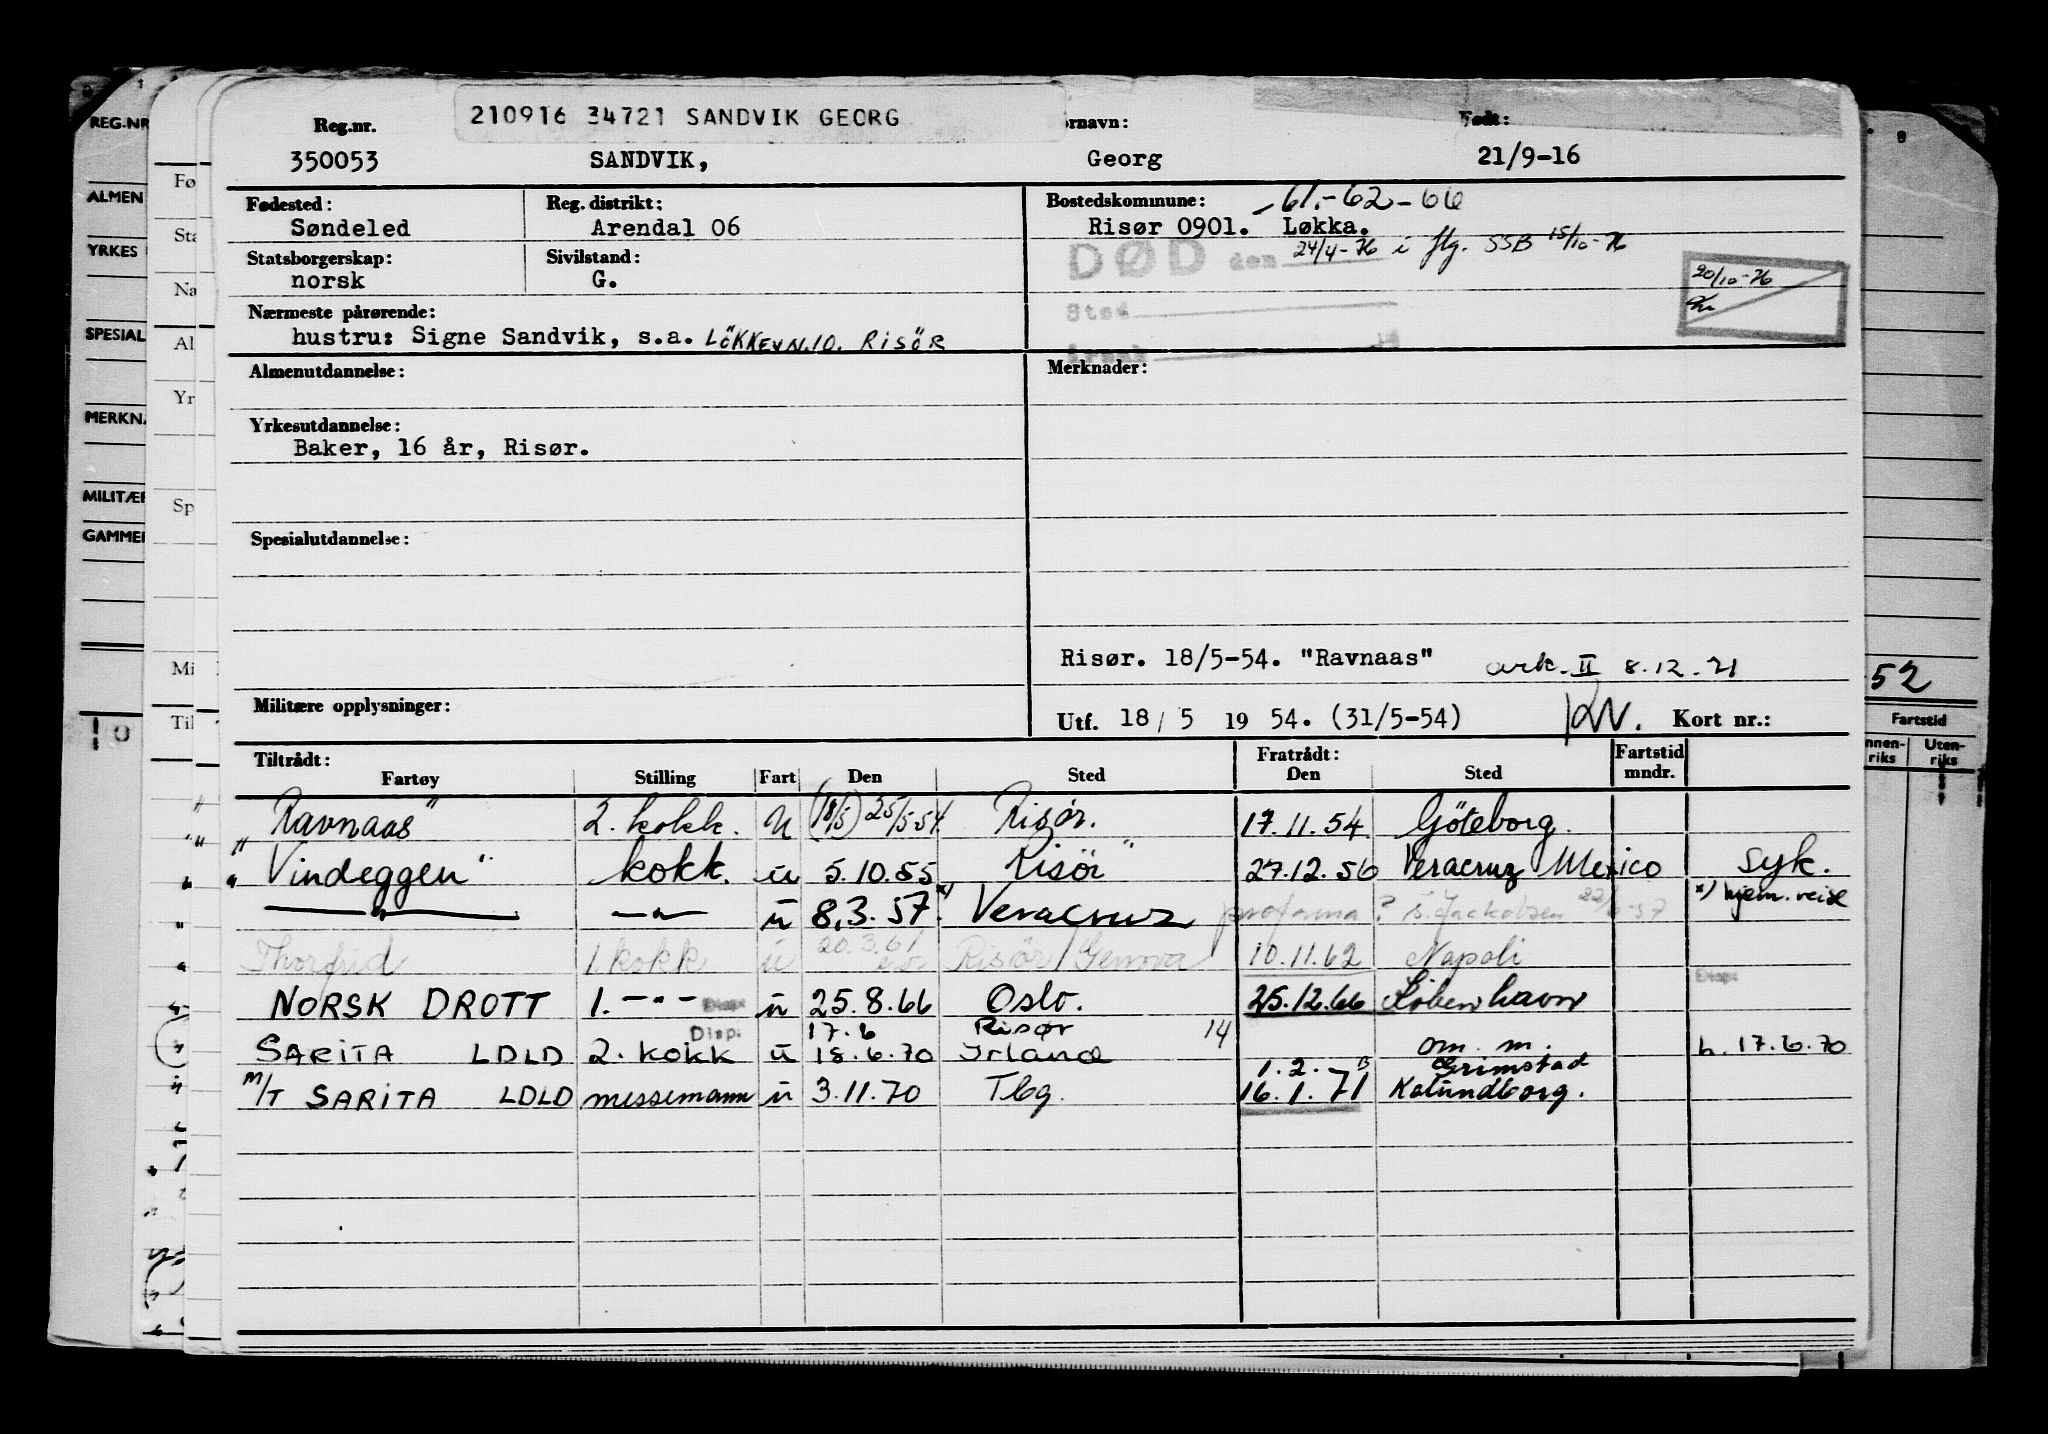 210916 34721 SANDVIK GEORG
Reg.nr. ornavn: Født:
350053 SANDVIK, Georg 21/9-16
Fødested: Reg. distrikt: Bostedskommune: 61.-62-66
Søndeled Arendal 06 Risør 0901. Løkka.
DØD den 24/4-76 i flg. SSB 15/10-76
Statsborgerskap: Sivilstand:
norsk G.
20/10-76
Sted
Nærmeste pårørende:
hustru: Signe Sandvik, s.a. LÖKKEVN.10. RISÖR
Årsak
Almenutdannelse: Merknader:
Yrkesutdannelse:
Baker, 16 år, Risør.
Spesialutdannelse:
Risør. 18/5-54. "Ravnaas" ark. II 8.12.71
Militære opplysninger:
Utf. 18/5 1954. (31/5-54) Kort nr.:
Tiltrådt: Fratrådt: Fartstid
Fartøy Stilling Fart Den Sted Den Sted mndr.
"Ravnaas" 2. kokk. u (18/5) 25/5 54. Risør. 17.11.54. Göteborg.
"Vindeggen" kokk. u 5.10.55 Risör 27.12.56 Veracruz Mexico syk.
—"— —"— u 8.3.57. x) Veracruz proforma ? x) hjem.reise
Thorfrid 1. kokk u 20.3.61 Risör/Genova 10.11.62 Napoli
Disp.
NORSK DROTT 1. -"- Disp. u 25.8.66 Oslo. 25.12.66 København
Disp. 17.6 Risør 14
SARITA LDLD 2. kokk u 18.6.70 Irland om. m. h. 17.6.70
1.2.- Grimstad
M/T SARITA LDLD messemann u 3.11.70 Tbg. 16.1.71 Kalundborg.
REG.NR
ALMEN
YRKES
SPESIAL
MERKNA
MILITÆR
GAMMEL
Fø
Sta
Na
Al
Yr
Sp
Mi
Til
52
Fartstid
nnen- Uten-
riks riks